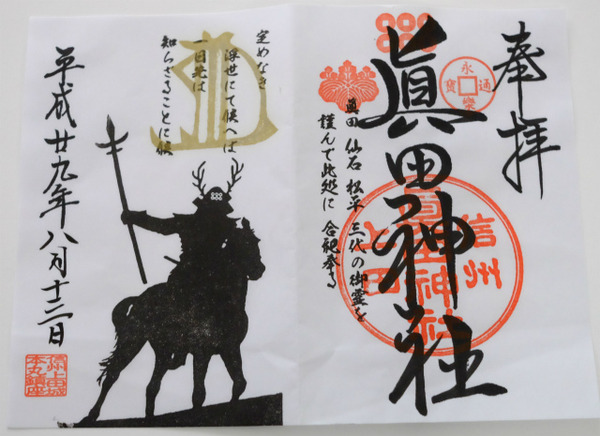 奉拝
永樂通寳
眞田神社
信州
上田
眞田神社
眞田 仙石 松平 三代の御霊を
謹んで此処に 合祀奉る
定めなき
浮世にて候へば
一日先は
知らざることに候
平成廿九年八月十三日
信州上田城
本丸鎮座